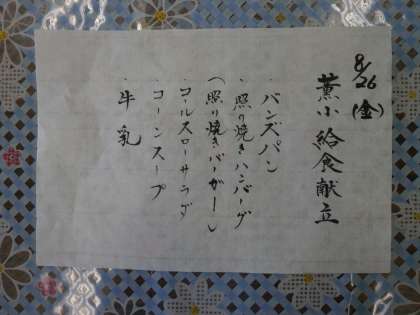 8/26(金)
薫小給食献立
・バンズパン
・照り焼きハンバーグ
(照り焼きバーガー)
・コールスローサラダ
・コーンスープ
・牛乳